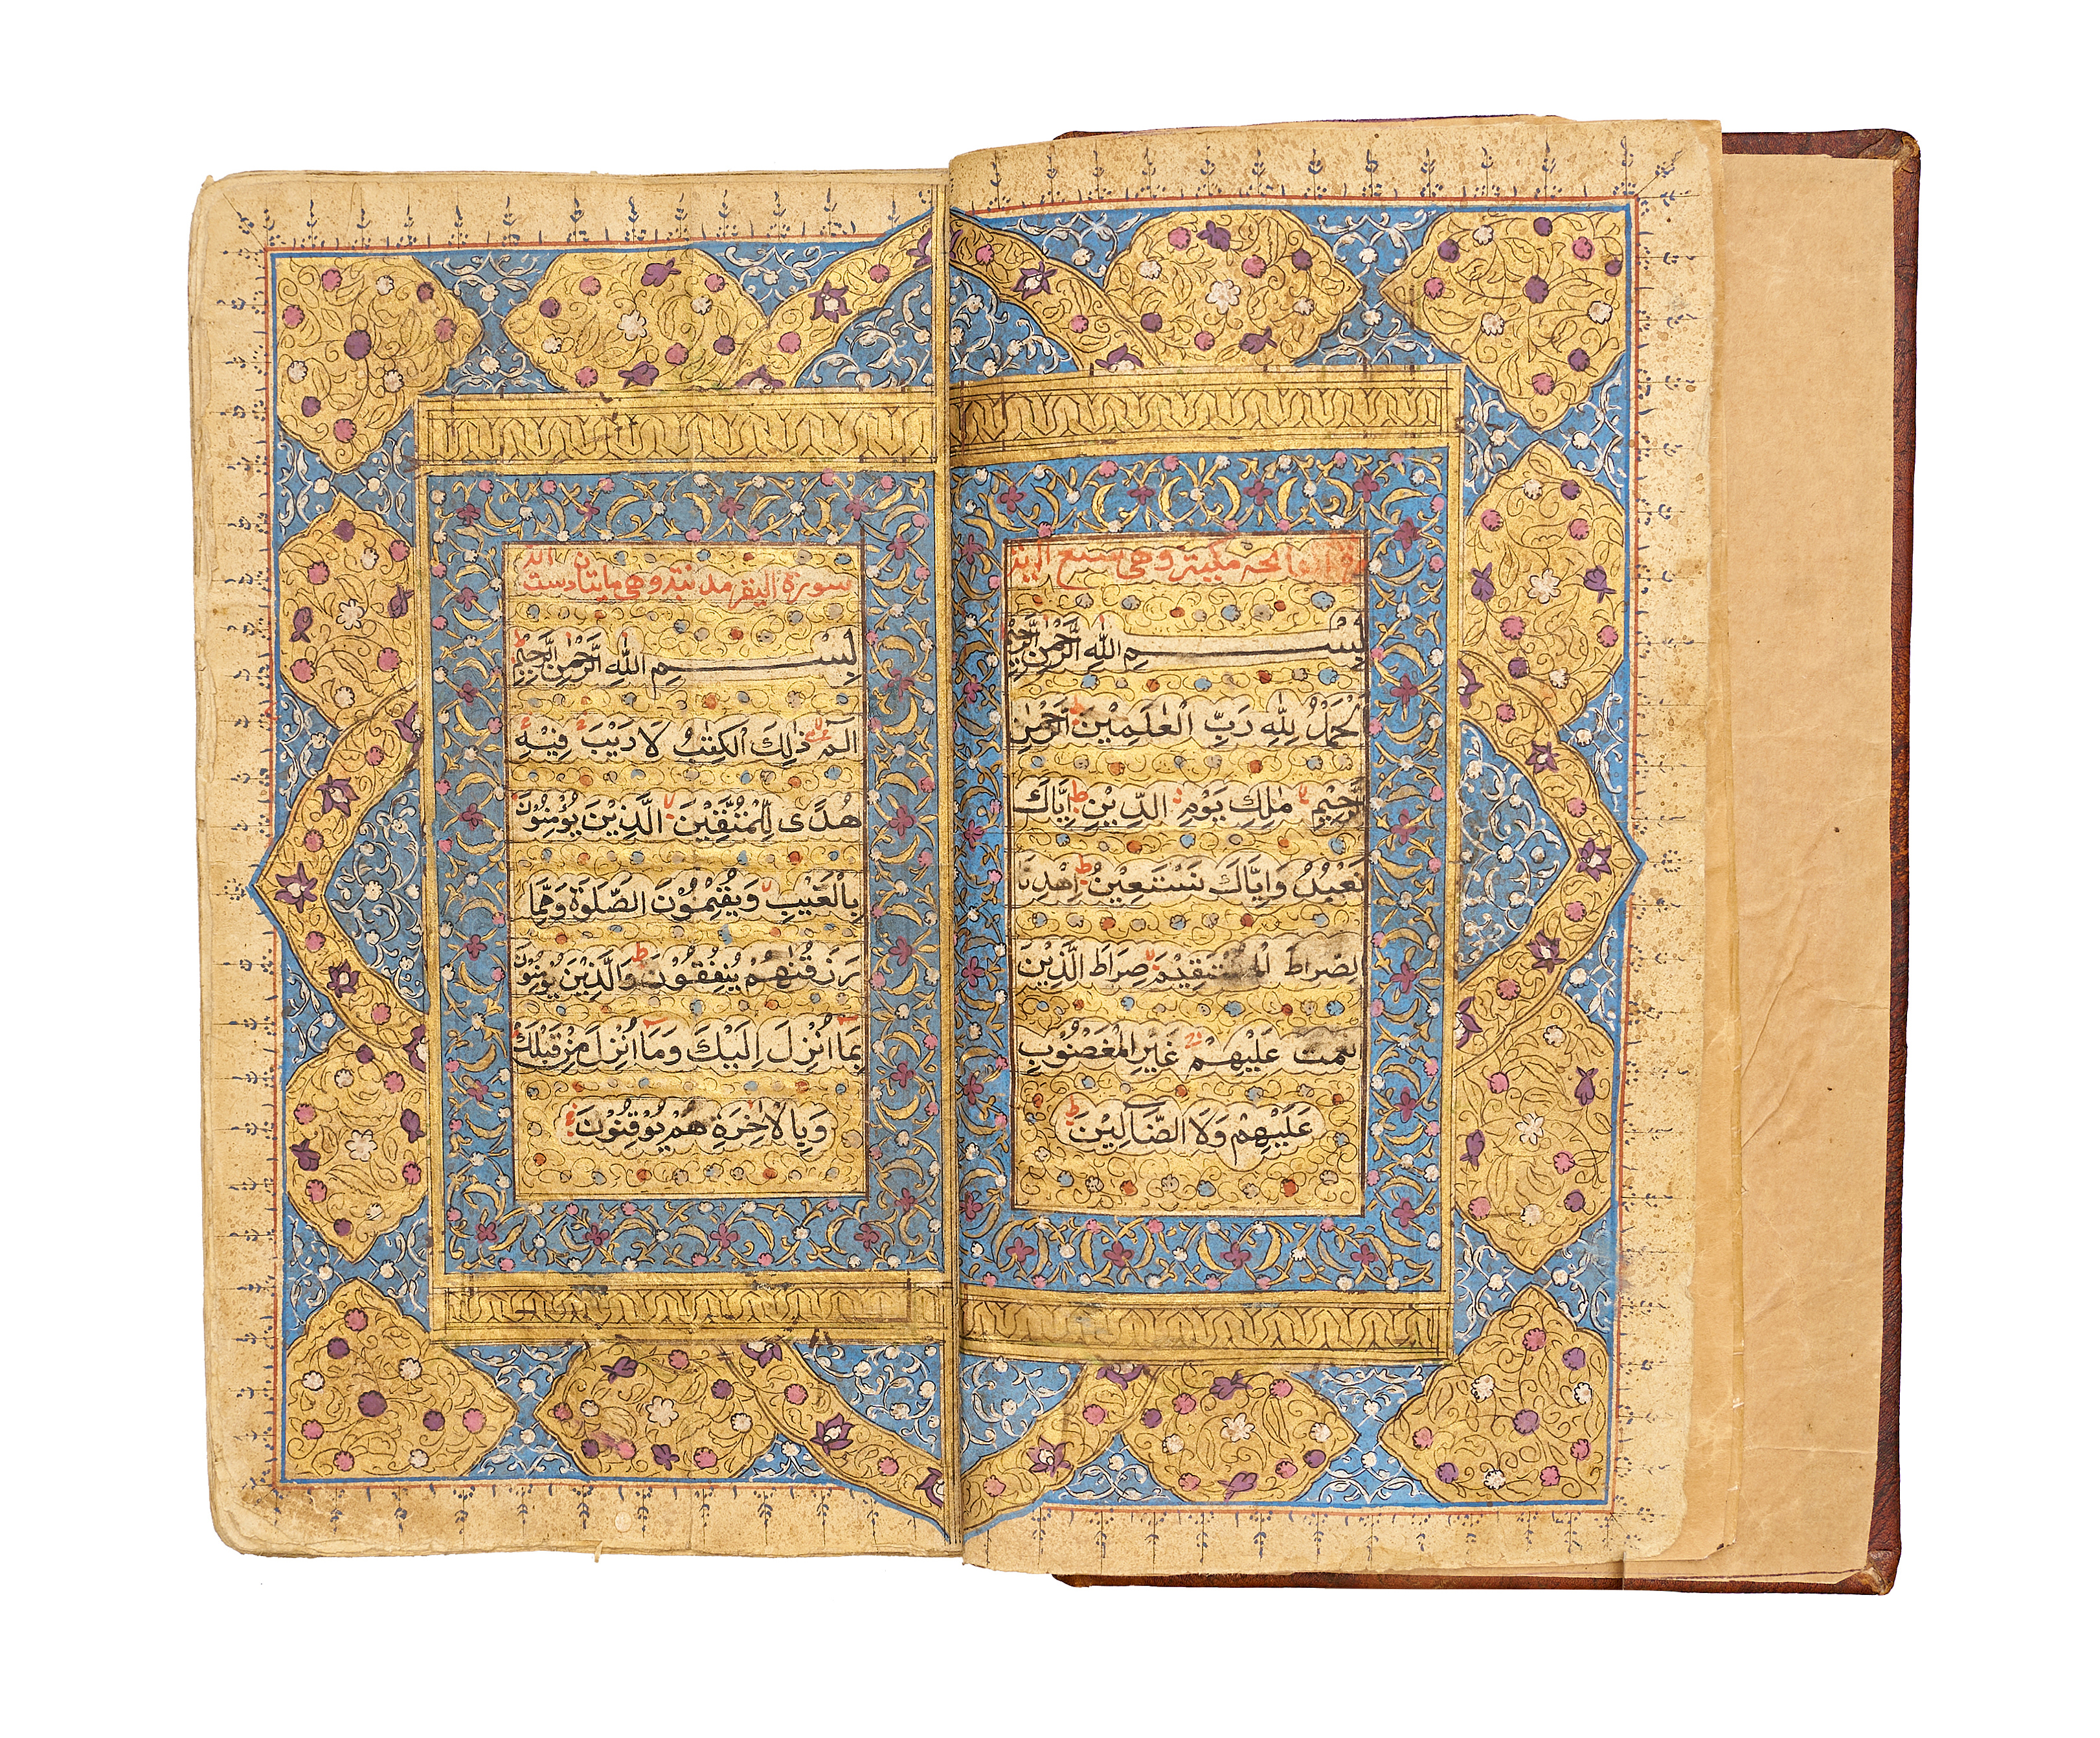 الفاتحة مكية وهي سبع
بِسْمِ اللهِ الرَّحْمٰنِ الرَّحِيْمِ
اَلْحَمْدُ لِلّٰهِ رَبِّ الْعٰلَمِيْنَ ط الرَّحْمٰنِ
الرَّحِيْمِ لا مٰلِكِ يَوْمِ الدِّيْنِ ط اِيَّاكَ
نَعْبُدُ وَاِيَّاكَ نَسْتَعِيْنُ ط اِهْدِنَا
الصِّرَاطَ الْمُسْتَقِيْمَ لا صِرَاطَ الَّذِيْنَ
انعمت عَلَيْهِمْ غَيْرِ الْمَغْضُوْبِ
عَلَيْهِمْ وَلَا الضَّآلِّيْنَ ط
سورة البقر مدنية وهي مايتان وست
بِسْمِ اللهِ الرَّحْمٰنِ الرَّحِيْمِ
الٓمٓ ذٰلِكَ الْكِتٰبُ لَا رَيْبَ فِيْهِ
هُدًى لِّلْمُتَّقِيْنَ لا الَّذِيْنَ يُؤْمِنُوْنَ
بِالْغَيْبِ وَيُقِيْمُوْنَ الصَّلٰوةَ وَمِمَّا
رَزَقْنٰهُمْ يُنْفِقُوْنَ ط وَالَّذِيْنَ يُؤْمِنُوْنَ
بِمَا اُنْزِلَ اِلَيْكَ وَمَا اُنْزِلَ مِنْ قَبْلِكَ
وَبِالْاٰخِرَةِ هُمْ يُوْقِنُوْنَ